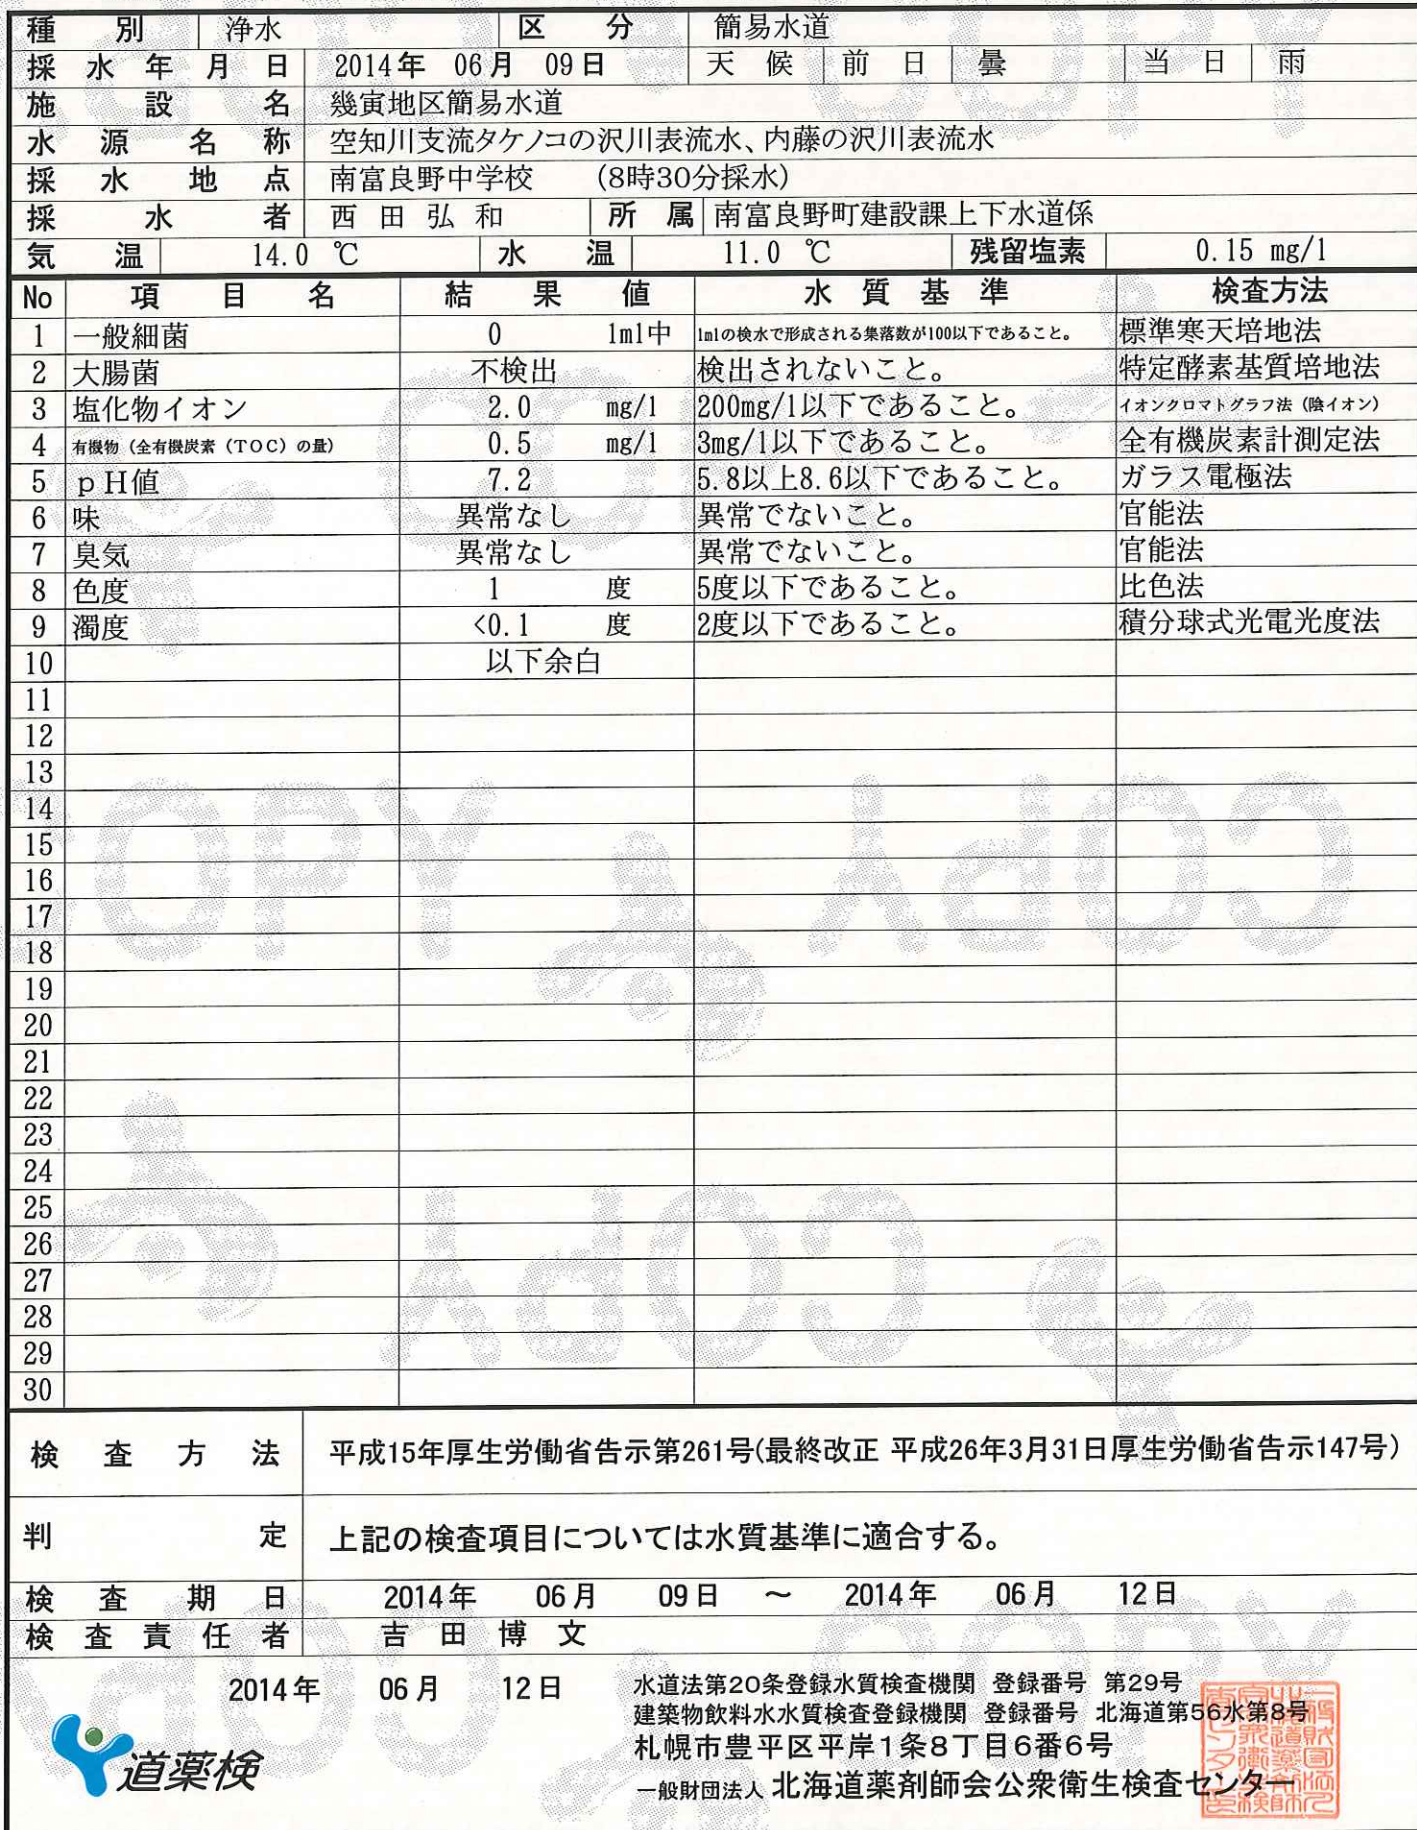 種別 浄水 区分 簡易水道
採水年月日 2014年 06月 09日 天候 前日 曇 当日 雨
施設名 幾寅地区簡易水道
水源名称 空知川支流タケノコの沢川表流水、内藤の沢川表流水
採水地点 南富良野中学校 (8時30分採水)
採水者 西田弘和 所属 南富良野町建設課上下水道係
気温 14.0 ℃ 水温 11.0 ℃ 残留塩素 0.15 mg/l
No 項目名 結果値 水質基準 検査方法
1 一般細菌 0 1ml中 1mlの検水で形成される集落数が100以下であること。 標準寒天培地法
2 大腸菌 不検出 検出されないこと。 特定酵素基質培地法
3 塩化物イオン 2.0 mg/l 200mg/l以下であること。 イオンクロマトグラフ法(陰イオン)
4 有機物(全有機炭素(TOC)の量) 0.5 mg/l 3mg/l以下であること。 全有機炭素計測定法
5 pH値 7.2 5.8以上8.6以下であること。 ガラス電極法
6 味 異常なし 異常でないこと。 官能法
7 臭気 異常なし 異常でないこと。 官能法
8 色度 1 度 5度以下であること。 比色法
9 濁度 <0.1 度 2度以下であること。 積分球式光電光度法
10 以下余白
11
12
13
14
15
16
17
18
19
20
21
22
23
24
25
26
27
28
29
30
検査方法 平成15年厚生労働省告示第261号(最終改正 平成26年3月31日厚生労働省告示147号)
判定 上記の検査項目については水質基準に適合する。
検査期日 2014年 06月 09日 ~ 2014年 06月 12日
検査責任者 吉田博文
2014年 06月 12日
水道法第20条登録水質検査機関 登録番号 第29号
建築物飲料水水質検査登録機関 登録番号 北海道第56水第8号
札幌市豊平区平岸1条8丁目6番6号
一般財団法人 北海道薬剤師会公衆衛生検査センター
道薬検
COPY
COPY
COPY
COPY
COPY